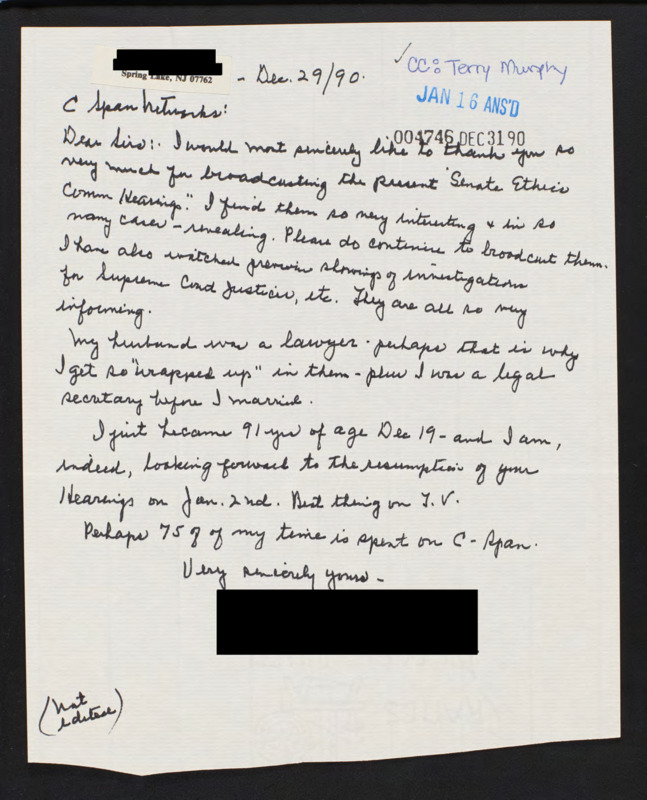 Spring Lake, NJ 07762
- Dec. 29/90.
✓ CC: Terry Murphy
JAN 16 ANS'D
004746 DEC 31 90
C Span Networks:
Dear Sirs:. I would most sincerely like to thank you so
very much for broadcasting the present "Senate Ethics
Comm Hearings." I find them so very interesting & in so
many cases - revealing. Please do continue to broadcast them.
I have also watched previous showings of investigations
for Supreme Court Justices, etc. They are all so very
informing.
My husband was a lawyer - perhaps that is why
I get so "wrapped up" in them - plus I was a legal
secretary before I married.
I just became 91 yrs of age Dec 19 - and I am,
indeed, looking forward to the resumption of your
Hearings on Jan. 2nd. Best thing on T.V.
Perhaps 75% of my time is spent on C-Span.
Very sincerely yours -
(not